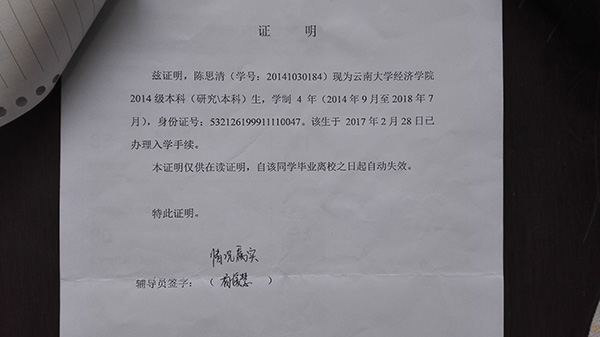 证 明
兹证明，陈思清（学号：20141030184）现为云南大学经济学院
2014 级本科（研究\本科）生，学制 4 年（2014 年 9 月至 2018 年 7
月），身份证号：532126199911110047。该生于 2017 年 2 月 28 日已
办理入学手续。
本证明仅供在读证明，自该同学毕业离校之日起自动失效。
特此证明。
情况属实
辅导员签字：（ ）